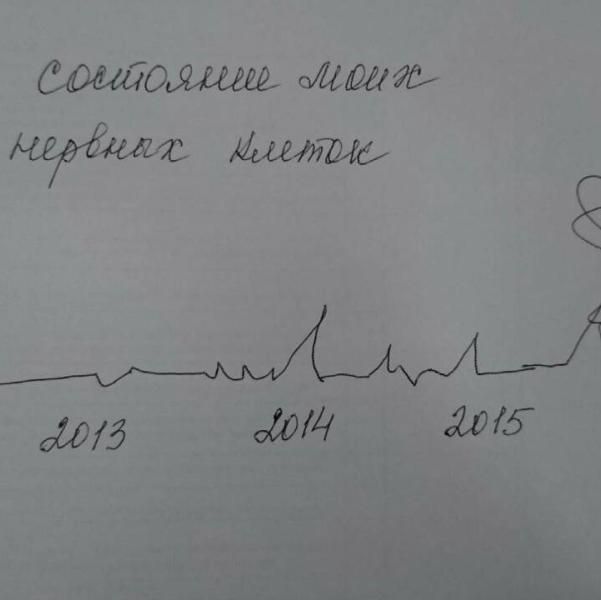 Состояние моих
нервных клеток
2013 2014 2015